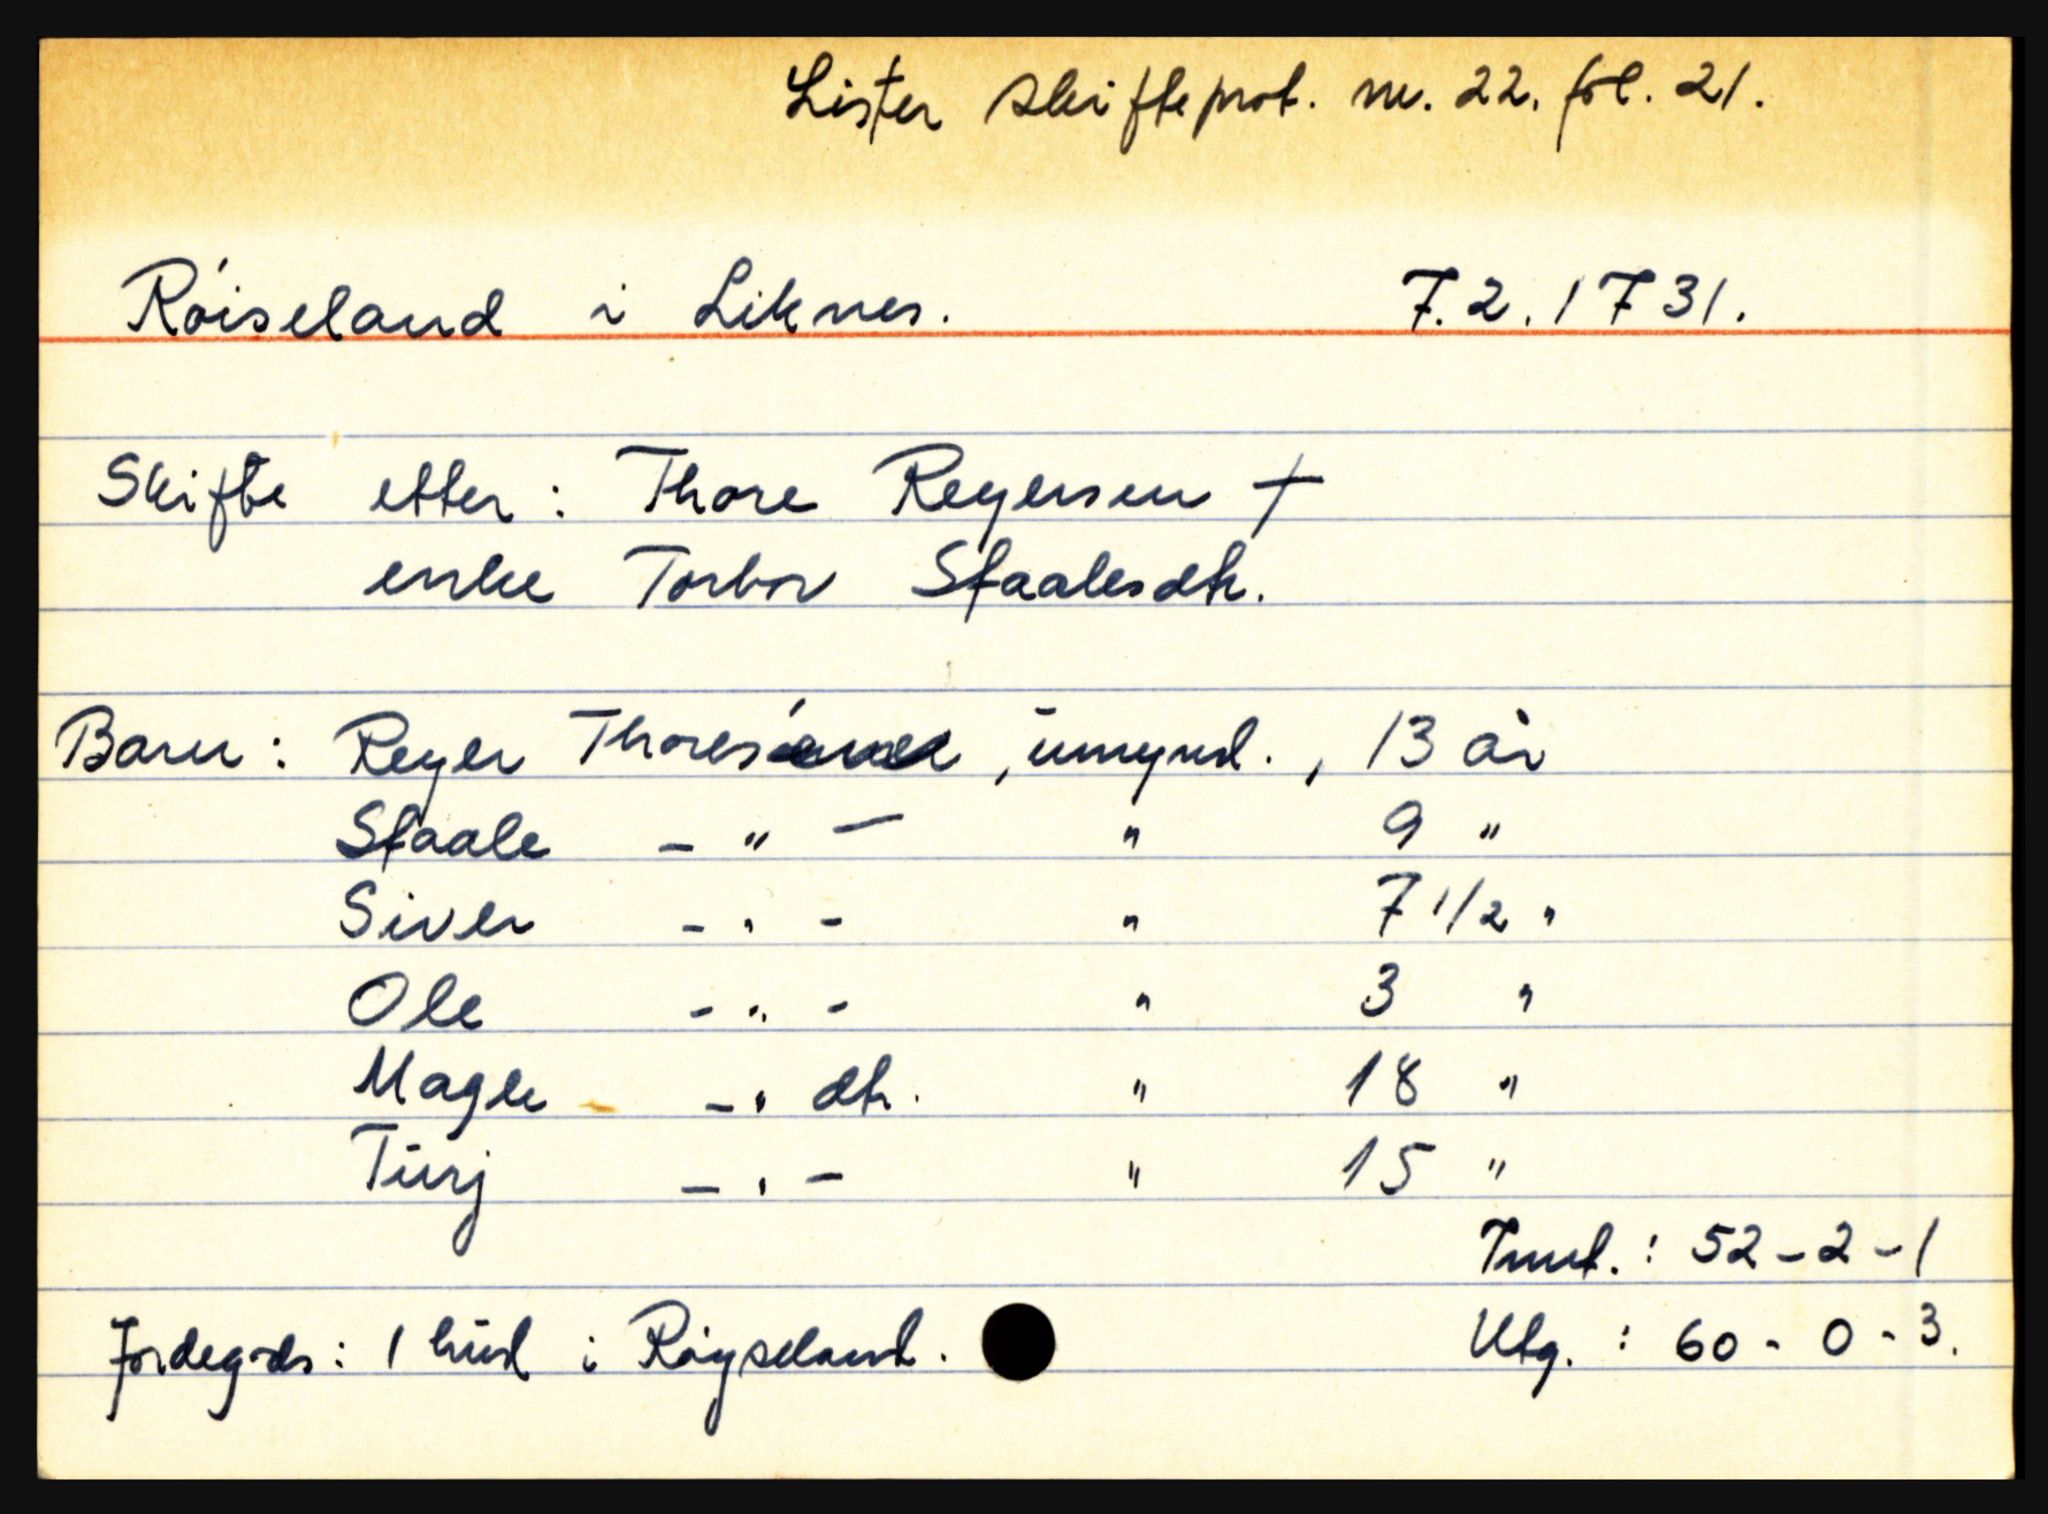 Lister Skifteprot. nr. 22. fol. 21.
Róiseland i Liknes. 7.2.1731.
Skifte etter: Thore Reyersen †
enke Torbor Staalesdtr.
Barn: Reyer Thores , umynd. , 13 år
Staale - " - " 9 "
Siver - " - " 7 1/2 "
Ole - " - " 3 "
Magle - " dtr. " 18 "
Turj - " - " 15 "
Innt.: 52-2-1
Jordegods: 1 hud i Røyseland. Utg.: 60-0-3.